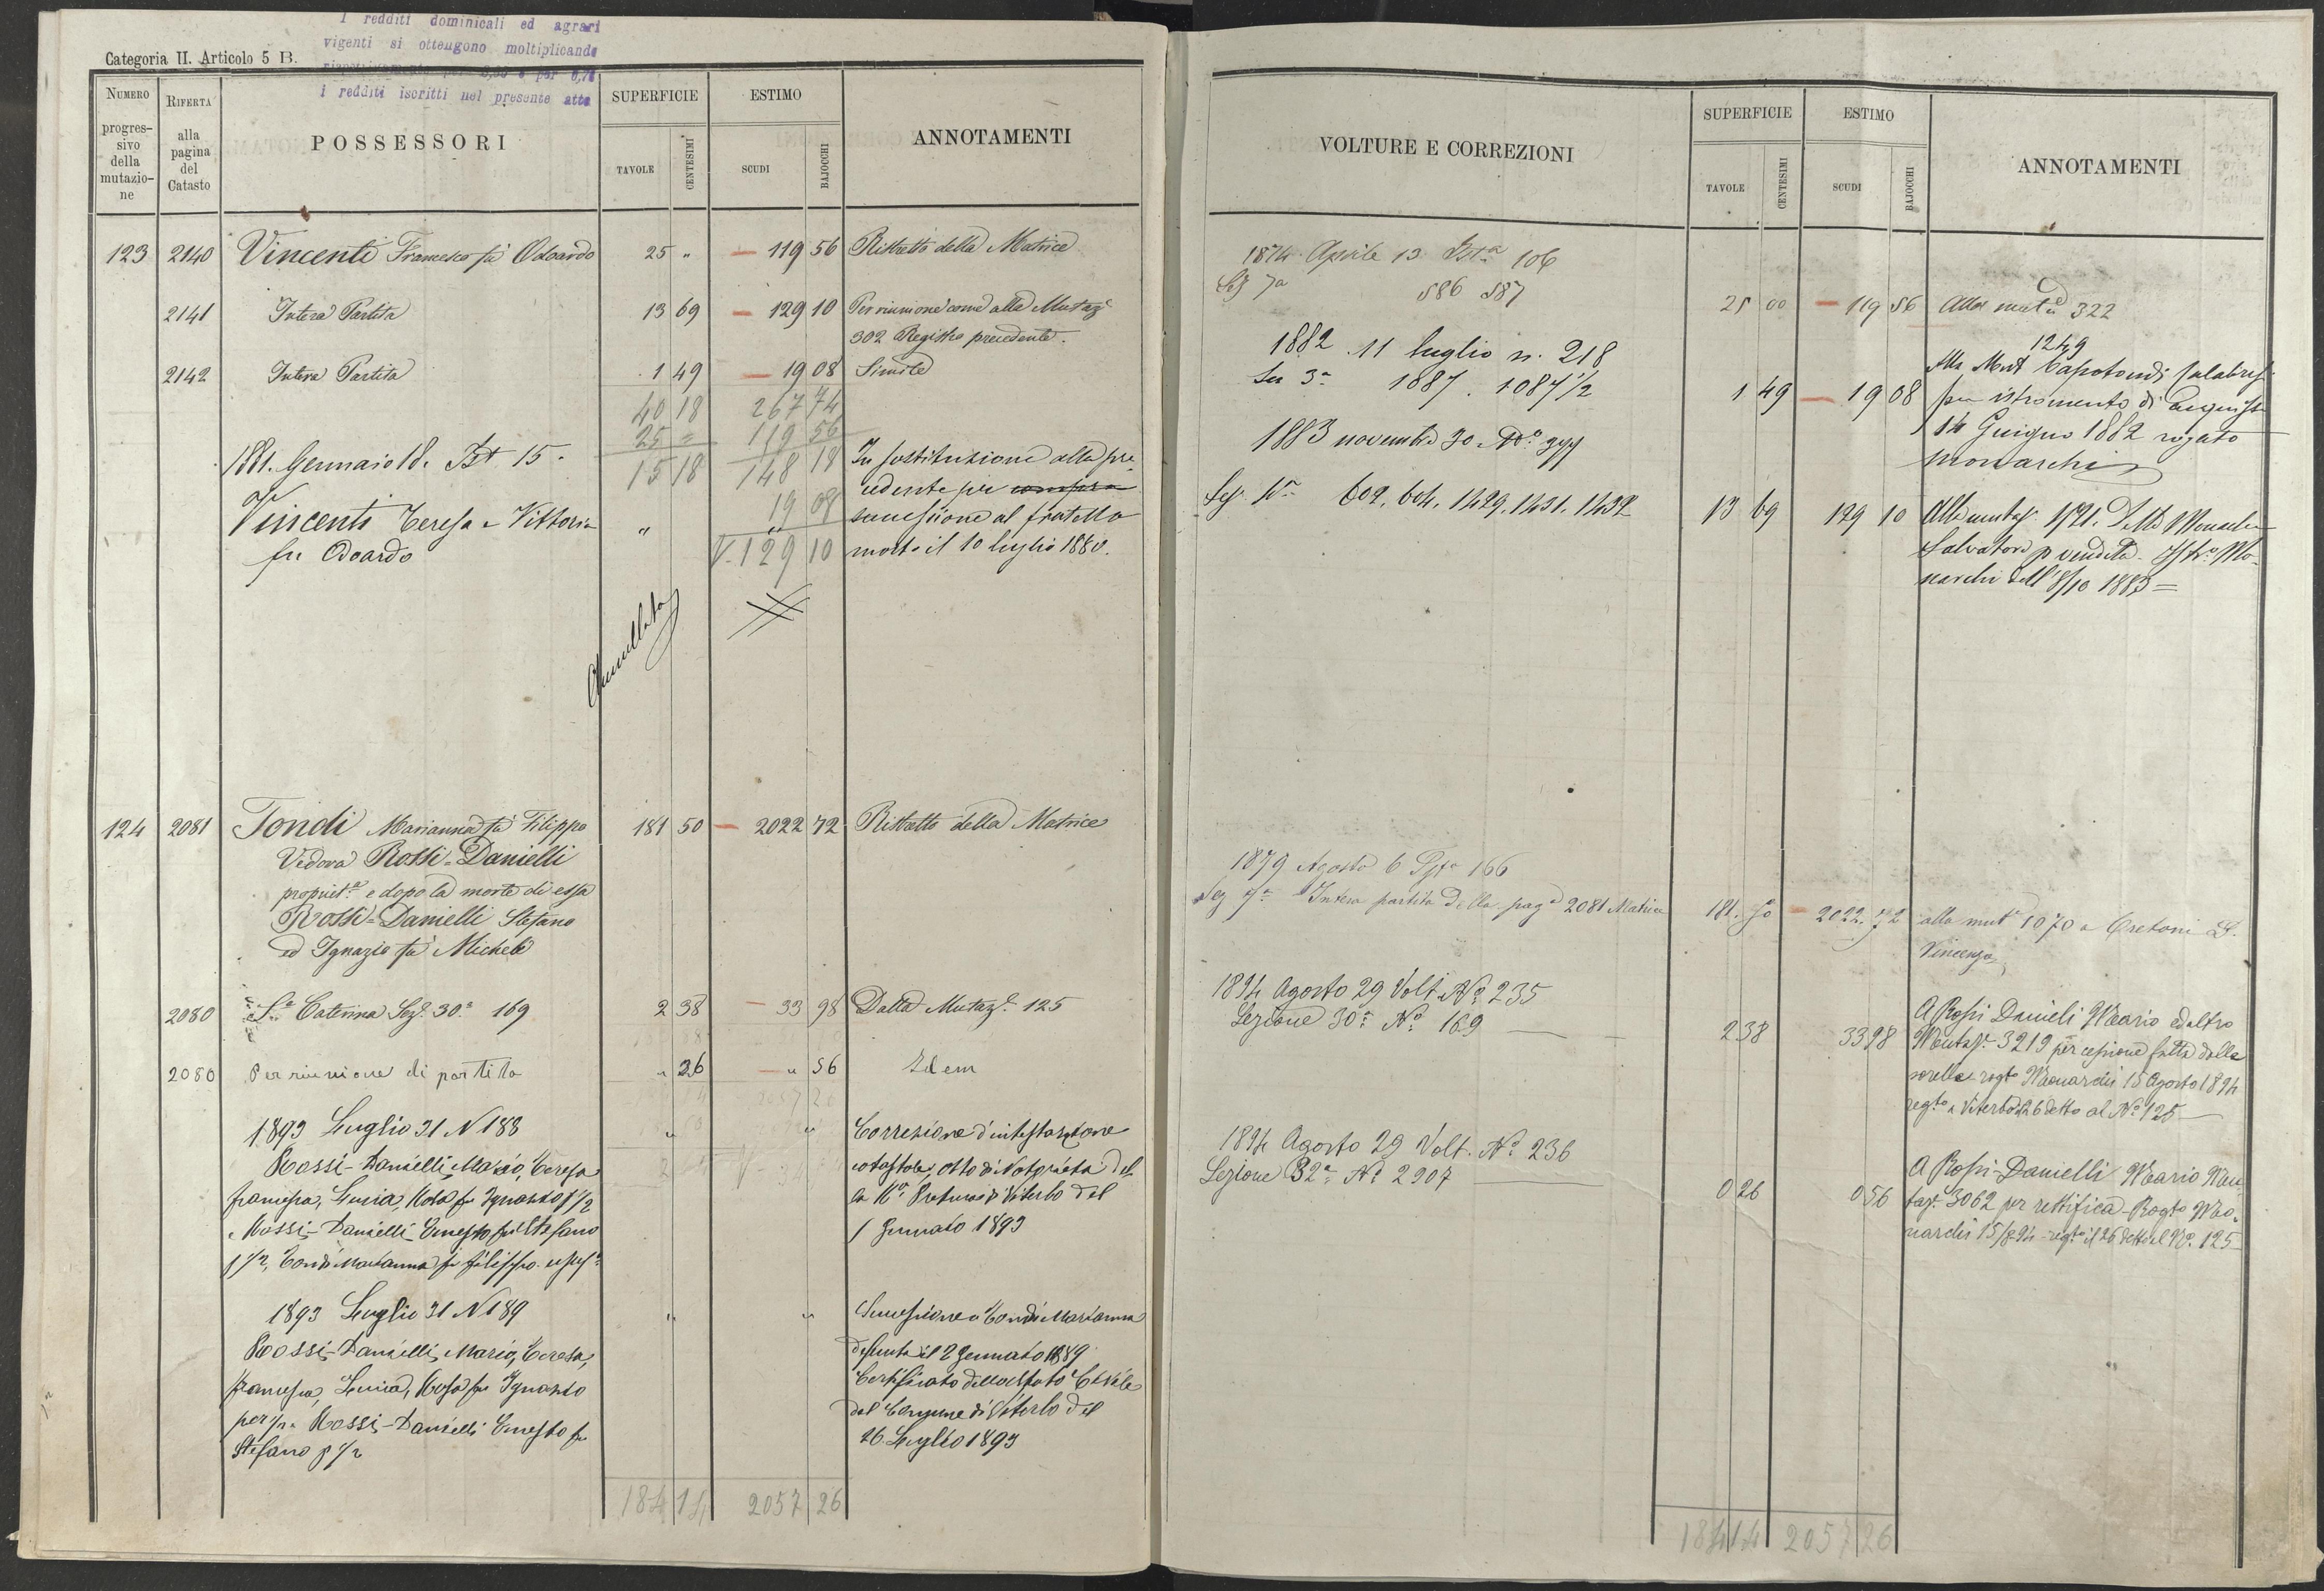 I redditi dominicali ed agrari
vigenti si ottengono moltiplicando
i redditi iscritti nel presente atto
Categoria II. Articolo 5 B.
NUMERO progressivo della mutazione
RIFERTA alla pagina del Catasto
POSSESSORI
SUPERFICIE
TAVOLE CENTESIMI
ESTIMO
SCUDI BAJOCCHI
ANNOTAMENTI
123 2140 Vincenti Francesco fu Odoardo 25 „ — 119 56 Ristretto della Matrice
2141 Intera Partita 13 69 — 129 10 Per riunione come alla Mutaz.e
302 Registro precedente.
2142 Intera Partita 1 49 — 19 08 Simile
40 18 267 74
25 = 119 56
15 18 148 18
19 08
V. 129 10
1881. Gennaio 18. Ist 15.
In sostituzione alla pre-
cedente per compra
Vincenti Teresa e Vittoria „ successione al fratello
fu Odoardo morto il 10 luglio 1880.
Annullata
124 2081 Tondi Marianna fu Filippo 181 50 — 2022 72 Ristretto della Matrice
Vedova Rossi-Danielli
propriet.a e dopo la morte di essa
Rossi-Danielli Stefano
ed Ignazio fu Michele
2080 S.a Caterina Sez. 30.a 169 2 38 — 33 98 Dalla Mutaz.e 125
2080 Per riunione di partita „ 26 — „ 56 Idem
1893 Luglio 31 N 188 „ „ Correzione d'intestazione
Rossi-Danielli Mario, Teresa catastale, atto di Notorietà del-
Francesca, Lucia, Rosa fu Ignazio p 1/2 la R.a Pretura di Viterbo del
e Rossi-Danielli Ernesto fu Stefano 1 Gennaio 1893
p 1/2, Tondi Marianna fu Filippo
1893 Luglio 31 N 189 „ „ Successione a Tondi Marianna
Rossi-Danielli, Mario, Teresa, defunta il 2 Gennaio 1889
Francesca, Lucia, Rosa fu Ignazio Certificato dello stato Civile
per 1/2 Rossi-Danielli Ernesto fu del Comune di Viterbo del
Stefano p 1/2 26 Luglio 1893
184 14 2057 26
VOLTURE E CORREZIONI
SUPERFICIE
TAVOLE CENTESIMI
ESTIMO
SCUDI BAJOCCHI
ANNOTAMENTI
1874 Aprile 13 Ist.a 106
Sez 7a 586 587 25 00 — 119 56 Alla mut.e 322
1882 11 luglio n. 218 1249
Sez 3a 1087. 1087 1/2 1 49 — 19 08 Alla Mut Capotondi
per istromento di acquisto
14 Giugno 1882 rogato
Monarchi
1883 novembre 30 N.o
Sez. 602. 604. 1429. 1431. 1432 13 69 129 10 Alla mutaz.
Salvatore p vendita. Istr.o Mo-
narchi dell' 8/10 1883 =
1879 Agosto 6 166
Sez Intera partita della pag.a 2081 Matrice 181. 50 — 2022. 72 alla mut.e 1070 a Cretoni
Vincenzo
1894 Agosto 29 Volt. N.o 235
Sezione 30a N.o 169 2 38 33 98 A Rossi Danieli Mario ed altro
Mutaz.e 3219 per cessione fatta dalle
sorelle rogto Monarchi 15 Agosto 1894
regto a Viterbo il 26 detto al N.o 125
1894 Agosto 29 Volt. N.o 236
Sezione 32a N.o 2907 0 26 0 56 A Rossi-Danielli Mario Mu-
taz. 3062 per rettifica-Rogto Mo-
narchi 15/8 94 - regto il 26 detto al N.o 125
184 14 2057 26